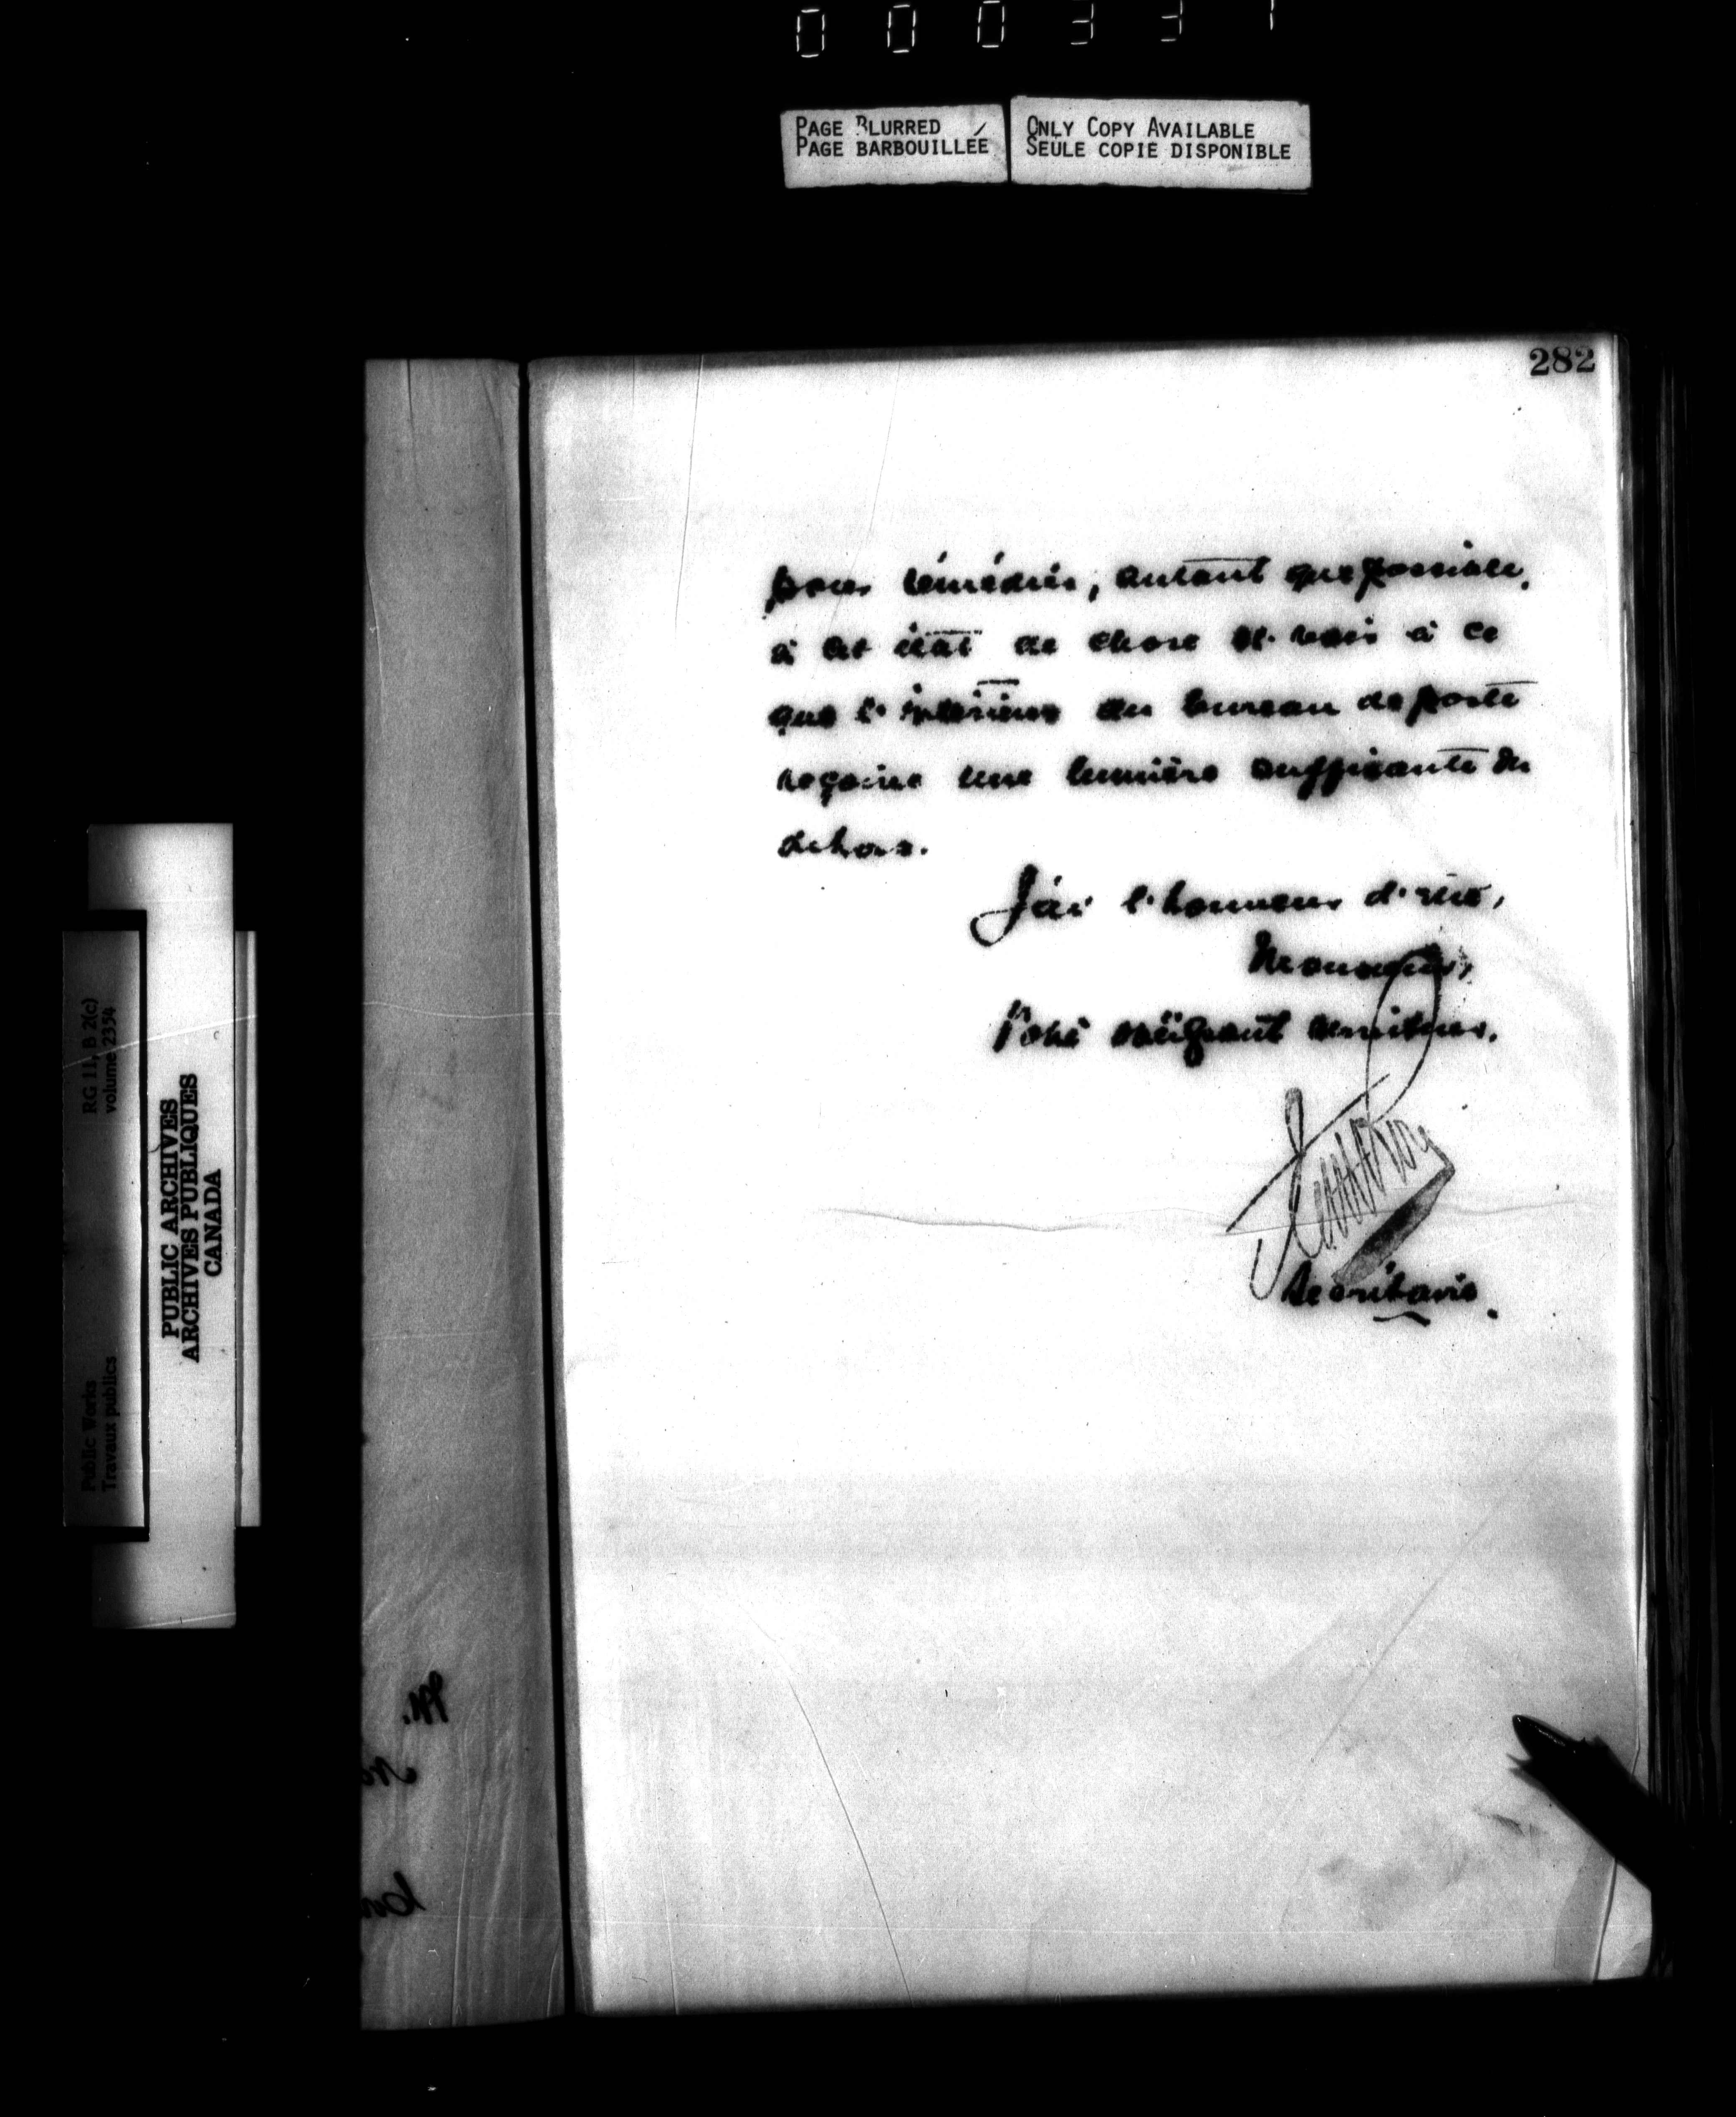 000331
PAGE BLURRED
PAGE BARBOUILLÉE
ONLY COPY AVAILABLE
SEULE COPIE DISPONIBLE
282
pour remédier, autant que possible,
à cet état de chose et voir à ce
que l'intérieur du bureau de poste
reçoive une lumière suffisante du
dehors.
J'ai l'honneur d'être,
Monsieur,
Votre obéissant serviteur.
Secrétaire.
RG 11, B 2(c)
volume 2354
Public Works
Travaux publics
PUBLIC ARCHIVES
ARCHIVES PUBLIQUES
CANADA